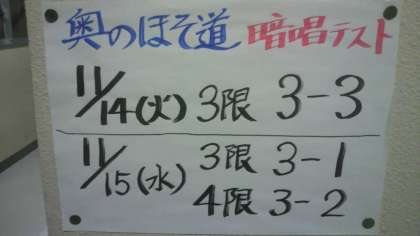 奥のほそ道 暗唱テスト
11/14(火) 3限 3-3
11/15(水) 3限 3-1
4限 3-2